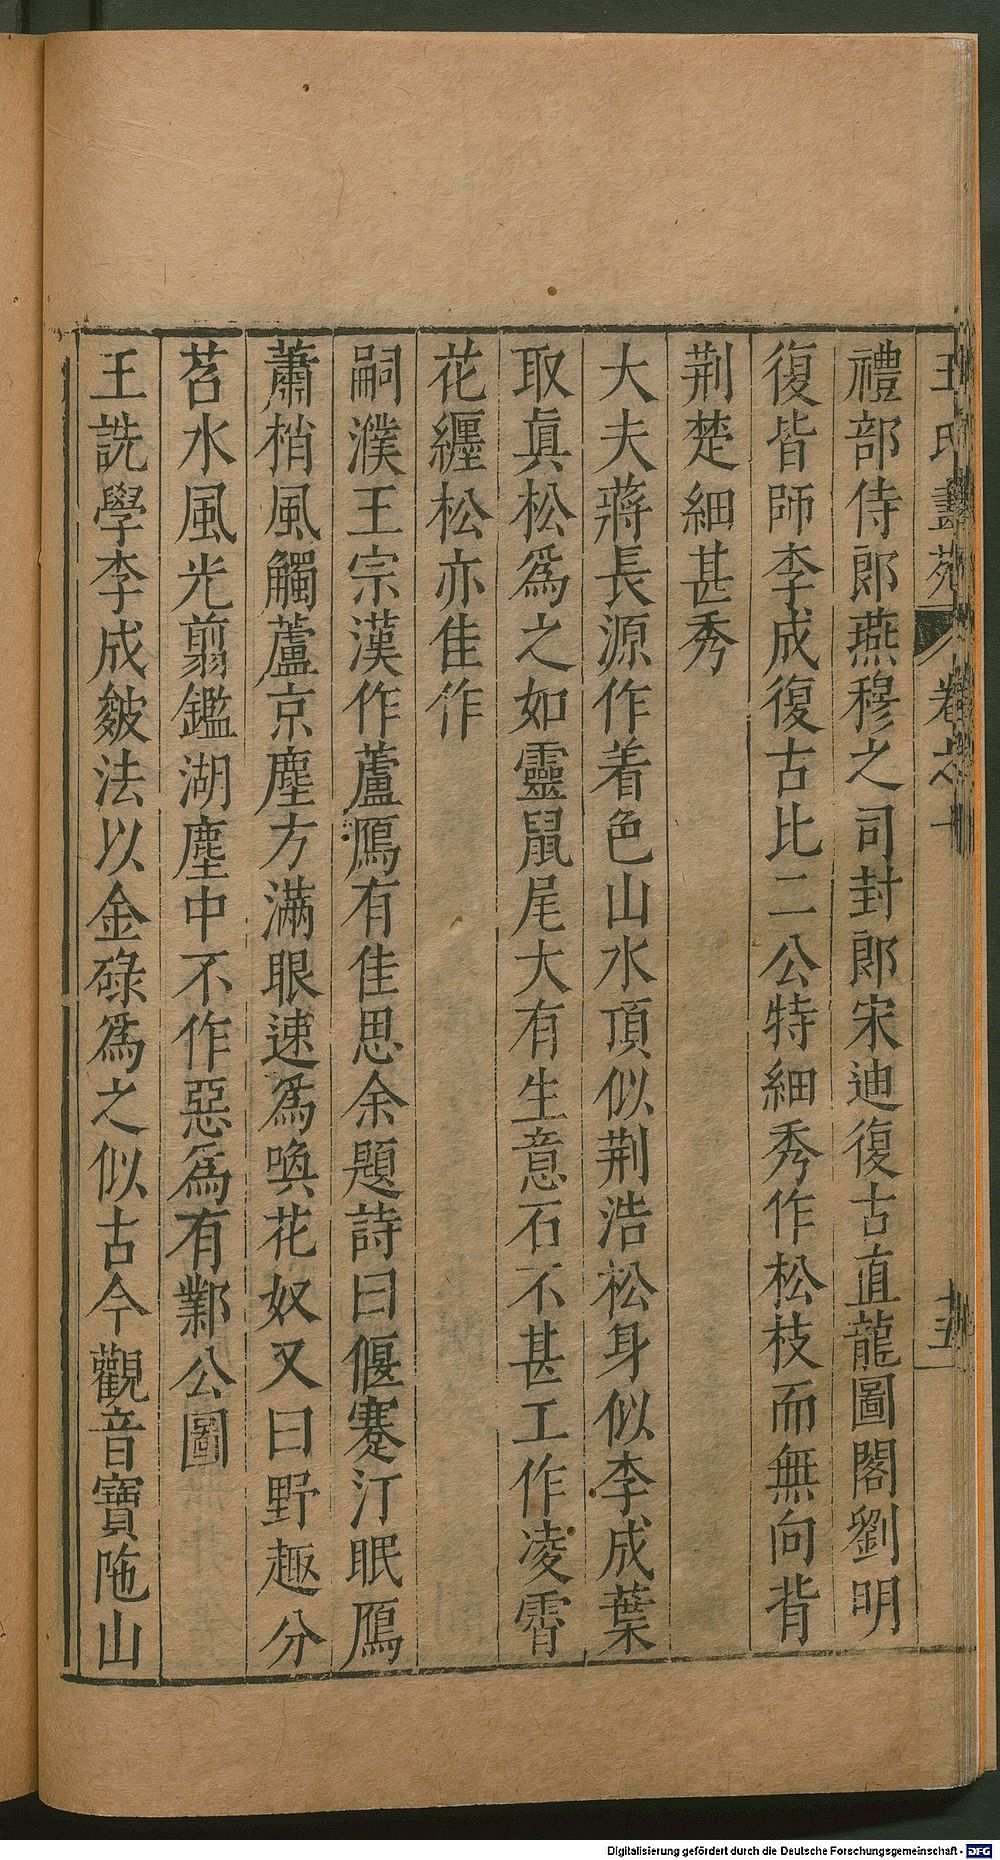 王氏畫苑 卷之十 十五
禮部侍郎燕穆之司封郎宋迪復古直龍圖閣劉明
復皆師李成復古比二公特細秀作松枝而無向背
荆楚細甚秀
大夫蔣長源作着色山水頂似荆浩松身似李成葉
取眞松爲之如靈鼠尾大有生意石不甚工作凌霄
花纏松亦佳作
嗣濮王宗漢作蘆鴈有佳思余題詩曰偃蹇汀眠鴈
蕭梢風觸蘆京塵方滿眼速爲喚花奴又曰野趣分
苕水風光剪鑑湖塵中不作惡爲有鄴公圖
王詵學李成皴法以金碌爲之似古今觀音寶陁山
Digitalisierung gefördert durch die Deutsche Forschungsgemeinschaft - DFG